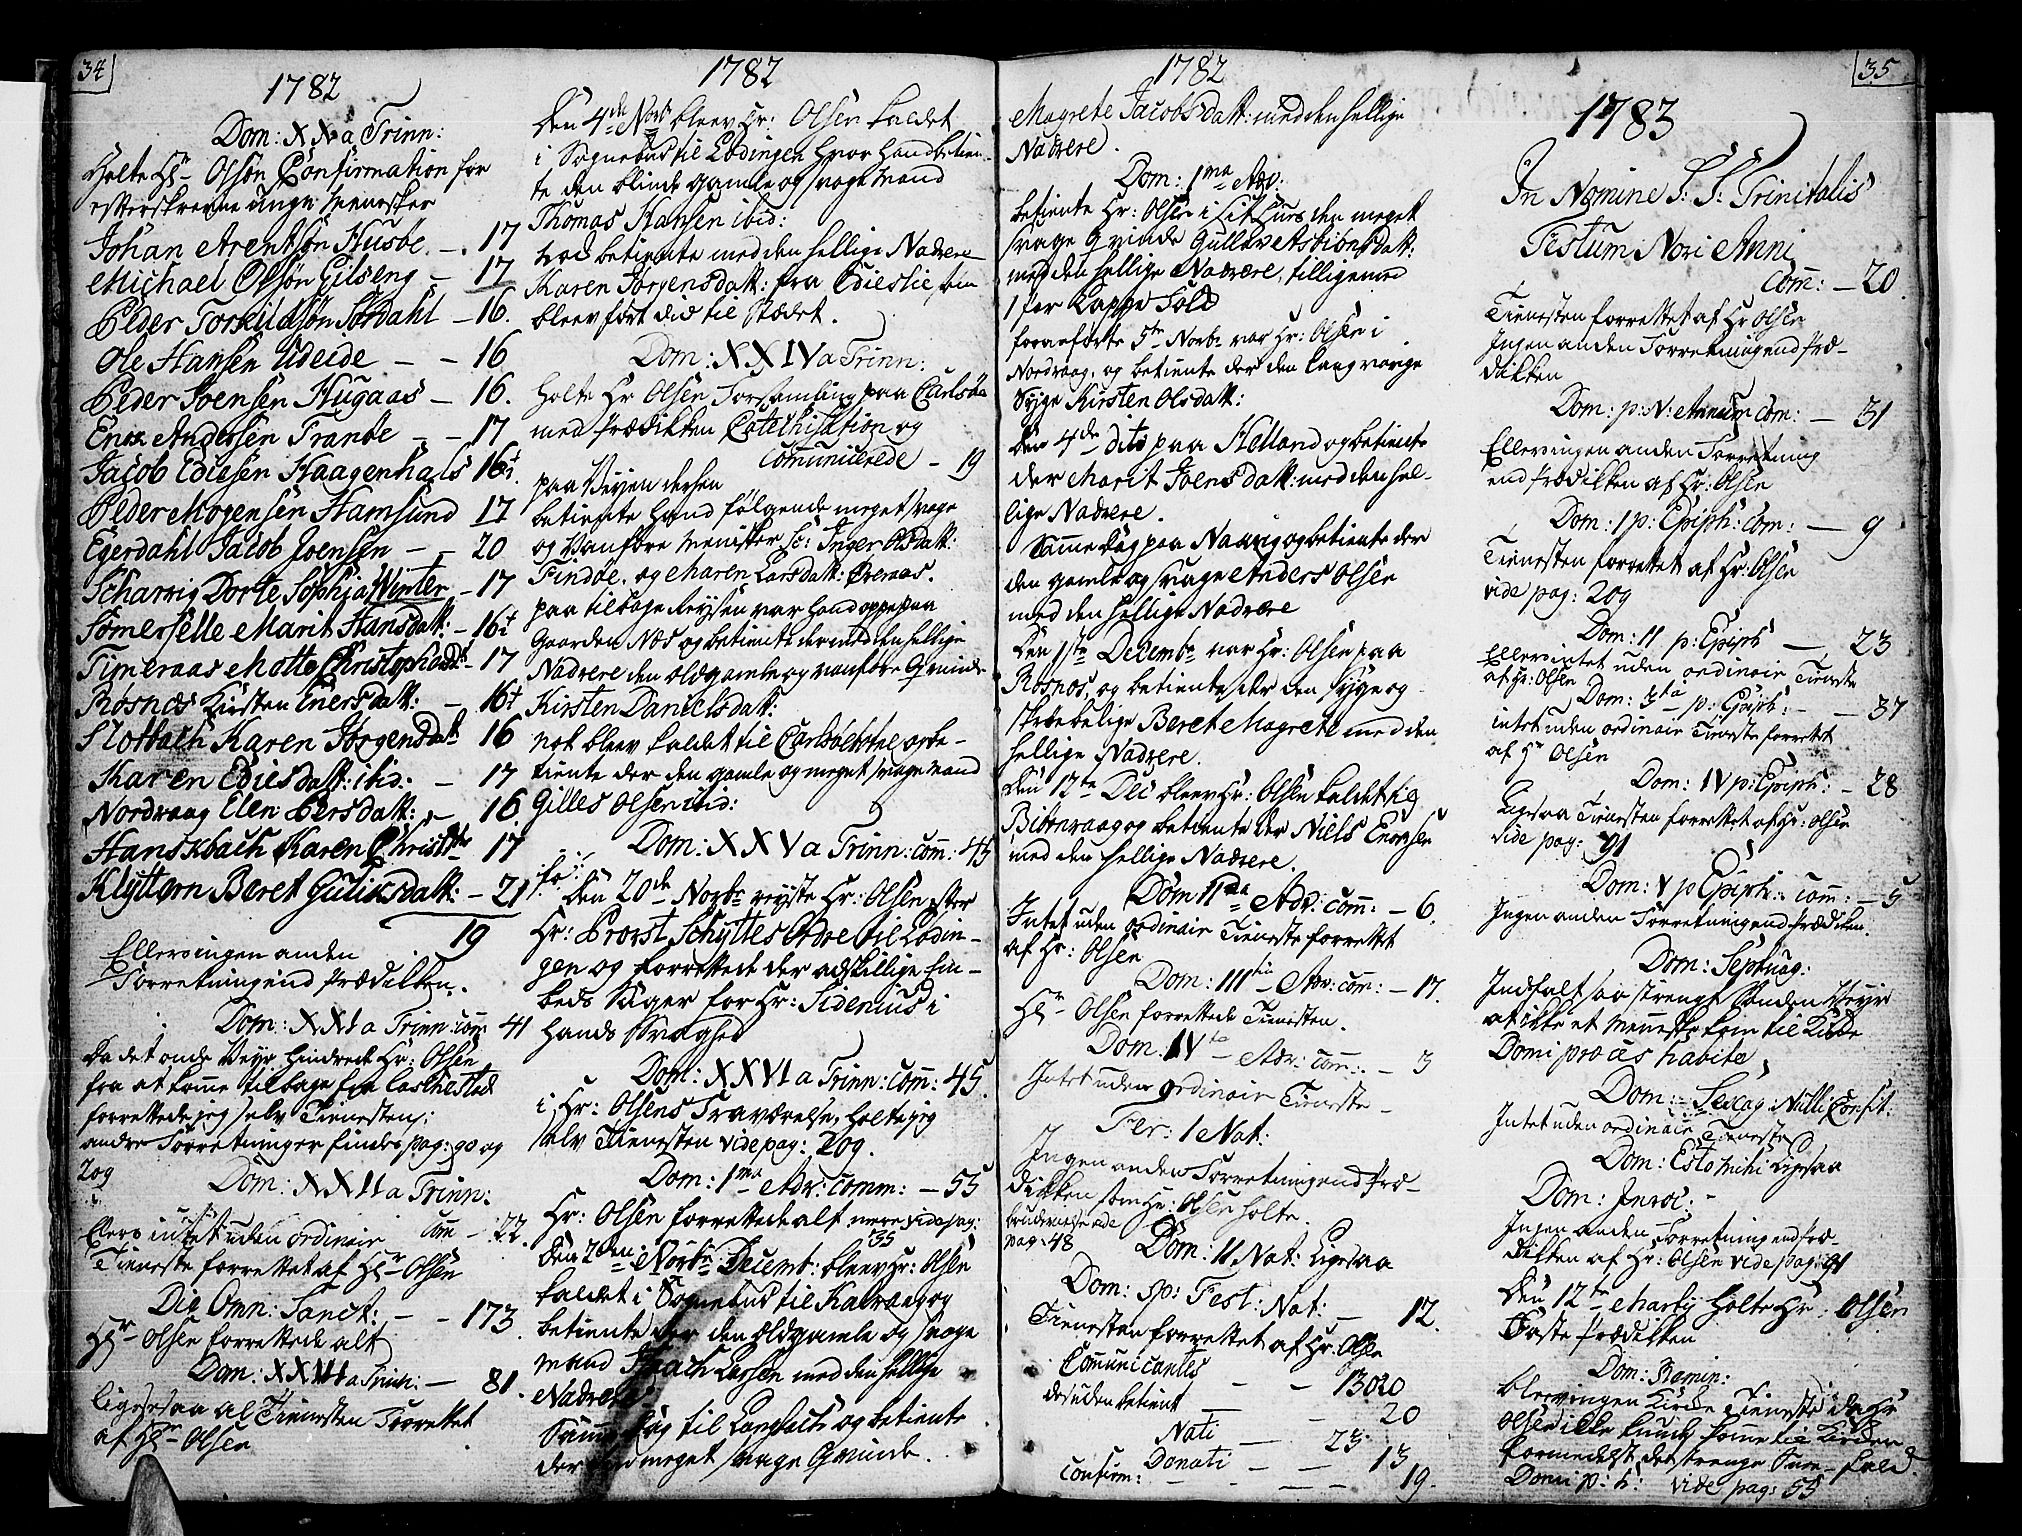 34
1782
Dom: XXa Trinn:
Holte Hr Olsön Confirmation for
efterskrevne unge Mennesker
Johan Arentsön Husöe - 17
Michael Olsön Gilseng - 17
Peder Torkildsön Stordahl - 16.
Ole Hansen Udeide - - 16
Peder Joensen Hugaas - 16.
Enok Andersen Tranöe - - 17
Jacob Ediesen Haagenhals 16½.
Peder Mogensen Hamsund 17
Egerdahl Jacob Joensen - - 20
Scharvig Dorte Sophia Winter - 17
Somerselle Marit Hansdatt: - 16½
Timeraas Mette Christophersd: - 17
Rösnæs Kirsten Enersdatt: - 16½
Slotbach Karen Jörgensdatt 16
Karen Ediesdatt: ibid: - 17
Nordraag Elen Persdatt: - 16
Hanskbach Karen Christ - 17
Klyttorn Beret Guliksdatt: - 21
19
Ellers ingen anden
Forretning end Prædiken.
Dom: XXIa Trinn: com: 41
Da det onde Veyr hindrede Hr: Olsen
fra at komme tilbage fra
forrettede jeg selv Tienesten;
andre Forretninger findes pag: 90 og
209
Dom: XXIIa Trinn:
Ellers intet uden ordinair Com - 22.
Tieneste forrettet af Hr Olsen
Die Omn: Sanct: - - 173.
Hr Olsen forrettede alt
Dom: XXIIIa Trinn: - 81.
Ligesaa al Tienesten Forrettet
af Hr Olsen
1782
Den 4de Novb blev Hr: Olsen kaldet
i Sognebud til Lödingen hvor hand betien-
te den blinde gamle og svage Mand
Thomas Hansen ibid:
betiente med den hellige Nadvere
Karen Jörgensdatt: fra Edieslie som
blev fört did til Stædet.
Dom: XXIVa Trinn:
holte Hr Olsen Forsamling paa Carlsöe
med Prædiken Catechisation og
Comunicerede - 19
paa Veyen derhen
betiente hand fölgende meget svage
og Vanföre Mennisker so: Inger Olsdatt:
Findöe. og Maren Larsdatt: Overaas.
paa tilbage Reysen var hand oppe paa
Gaarden Næs og betiente der med den hellige
Nadvere den oldgamle og vanföre Qvinde
Kirsten Danielsdatt:
not blev kaldet til og be-
tiente der den gamle og meget svage Mand
Gilles Olsen ibid:
Dom: XXVa Trinn: com: 45
Den 20de Novbr reyste Hr: Olsen efter
Hr: Provst Schyttes Ordre til Lödin-
gen og forrettede der adskillige Em-
beds Sager for Hr: Sidenius i
hands Svaghed
Dom: XXVIa Trinn: com: 45.
i Hr: Olsens Fraværelse, holte jeg
selv Tienesten vide pag: 209.
Dom: 1ma Adv: comm: - 55
Hr: Olsen forrettede alt mere vide pag:
35
Den 2den Novbr Decemb: blev Hr: Olsen
kaldet i Sognebud til Kalvaag og
betiente der den oldgamle og svage
Mand Isach Larsen med den hellige
Nadvere
Samme dag til og betiente
der meget svage Qvinde.
1782
Magrete Jacobsdatt: med den hellige
Nadvere.
Dom: 1ma Adv:
betiente Hr: Olsen i den meget
svage Qvinde Gullov Asbiönsdatt:
med den hellige Nadvere, tilligemed
1 par Lappe Folk
foranförte 5te Novbr var Hr: Olsen i
Nordraag, og betiente der den langvarige
Syge Kirsten Olsdatt:
den 4de dito paa Helland og betiente
der Marit Joensdatt: med den hel-
lige Nadvere.
Samme dag paa og betiente der
den gamle og svage Anders Olsen
med den hellige Nadvere
Den 1ste Decembr var Hr: Olsen paa
Rosnes, og betiente der den syge og
skröbelige Beret Magrete med den
hellige Nadvere.
Den 12te Dec blev Hr: Olsen kaldet til
og betiente der Niels
med den hellige Nadvere.
Dom IIda Adv: com: - 6.
Intet uden ordinair Tieneste forrettet
af Hr: Olsen
Dom: III Adv: com: - 17.
Hr Olsen forrettede Tienesten.
Dom: IV Adv: com: - 3
Intet uden ordinair Tieneste -
Fer: 1 Nat:
Ingen anden Forretning end Præ-
diken som Hr: Olsen holte.
brudevielse vide
pag: 48
Dom: II Nat: Ligesaa
Dom: p: Fest: Nat: - 12.
Tienesten forrettet af Hr: Olsen
Communicantes - - 1302
desuden betient - - 20
Nati - - 23
Donati - - 13
Confirm: - - - 19.
35
1783
In Nomine S: S: Trinitatis
Festum Novi Anni
Com: - 20.
Tienesten forrettet af Hr Olsen
Ingen anden Forretning end Præ-
diken
Dom: p: N: Annum com: - 31
Ellers ingen anden Forretning
end Prædiken af Hr: Olsen
Dom: 1 p: Epiph: com: - 9
Tienesten forrettet af Hr: Olsen
vide pag: 209
Dom: II p: Epiph - 23
Ellers intet uden ordinair Tieneste
af Hr: Olsen
Dom: 3tia p: Epiph: - - 37
intet uden ordinair Tieneste forrettet
af Hr Olsen
Dom: IV p: Epiph: - 28
Ligesaa Tienesten forrettet af Hr: Olsen
vide pag: 91
Dom: V p Epiph: com: - 5
Ingen anden Forretning end Prædiken.
Dom: Septuag:
Indfalt saa strengt Veyr
at ikke et Menneske kom til Kirke
Domi preces habitæ
Dom: Sexag: Nulli Confit:
Intet uden ordinair Tieneste
Dom: Esto mihi Ligesaa
Dom: Invoc: -
Ingen anden Forretning end Præ-
diken af Hr: Olsen vide pag: 91
Den 12te Marty holte Hr: Olsen
Faste Prædiken
Dom: Remin:
blev ingen Kirke Tieneste da Hr
Olsen ikke kunde komme til Kirken
formedelst det strenge Snee-fald.
Domi p: h: vide pag: 55